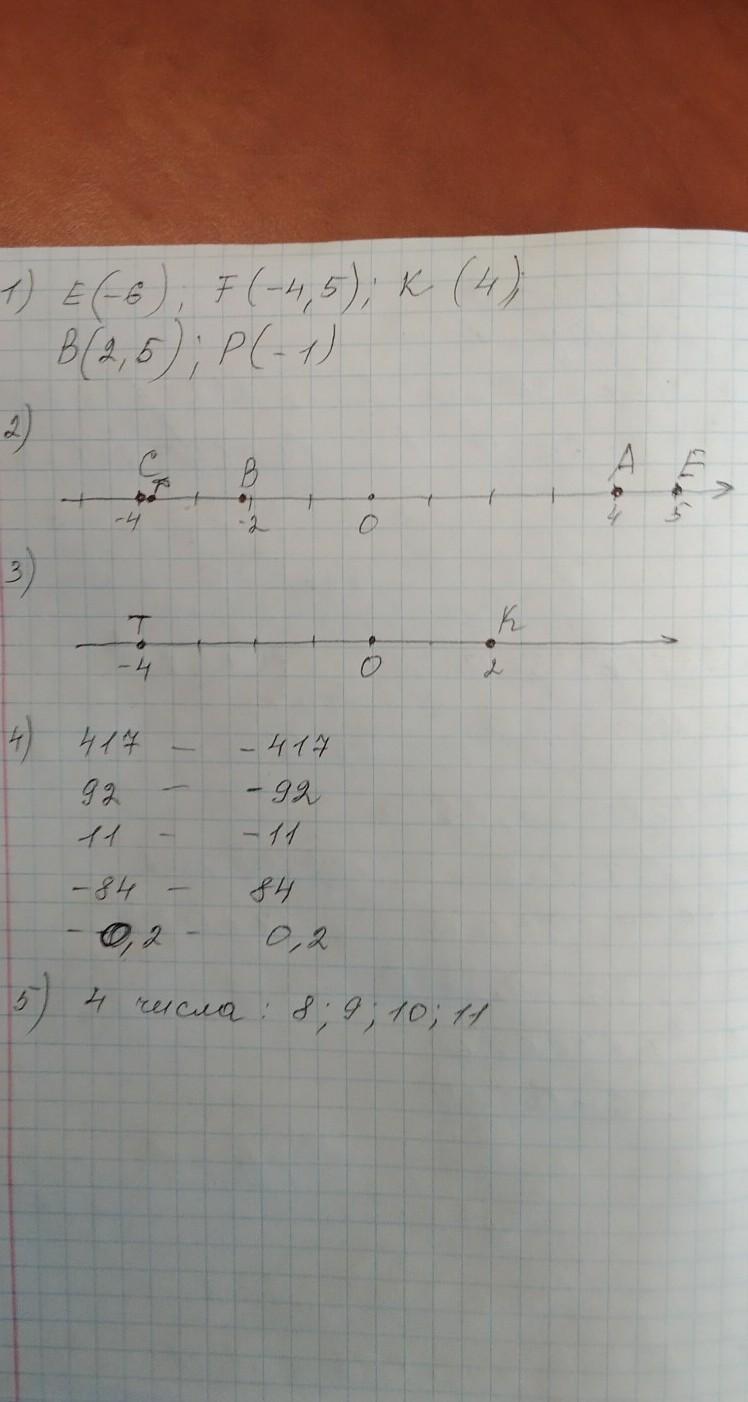 1) E(-6); F(-4,5); K (4);
B(2,5); P(-1)
2)
C B A E
-4 -2 0 4 5
3)
T K
-4 0 2
4) 417 — -417
92 — -92
11 - -11
-84 - 84
-0,2 - 0,2
5) 4 числа: 8; 9; 10; 11